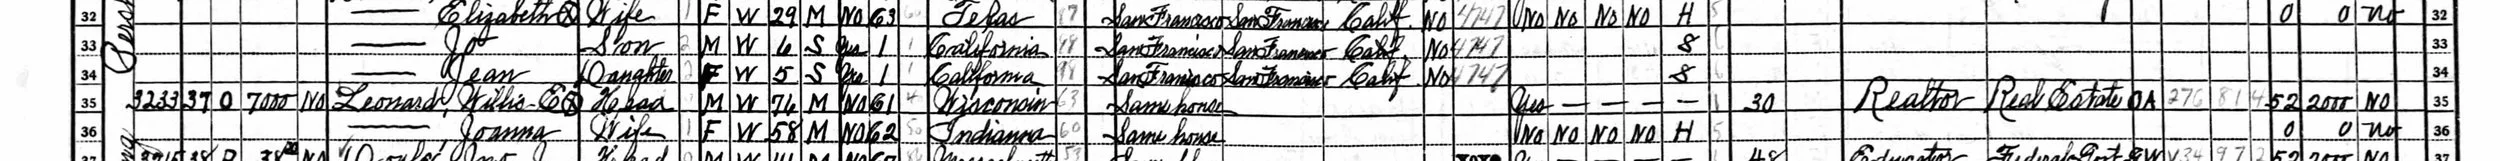 32 Elizabeth Wife F W 29 M No 63 Texas 17 San Francisco San Francisco Calif No 4747 No No No No H 5 0 0 no 32
33 Jo Son M W 6 S Yes 1 California 18 San Francisco San Francisco Calif No 4747 S 33
34 Jean Daughter F W 5 S Yes 1 California 18 San Francisco San Francisco Calif No 4747 S 34
35 3233 37 O 7000 No Leonard, Willis E Head M W 76 M No 61 Wisconsin 63 Same house Yes — — — — 1 30 Realtor Real Estate OA 276 81 4 52 2000 No 35
36 Joanna Wife 1 F W 58 M No 62 Indianna 60 Same house No No No No H 5 0 0 no 36
37 38 R No Head Educator Federal Govt GW V34 97 2 52 2000 No 37